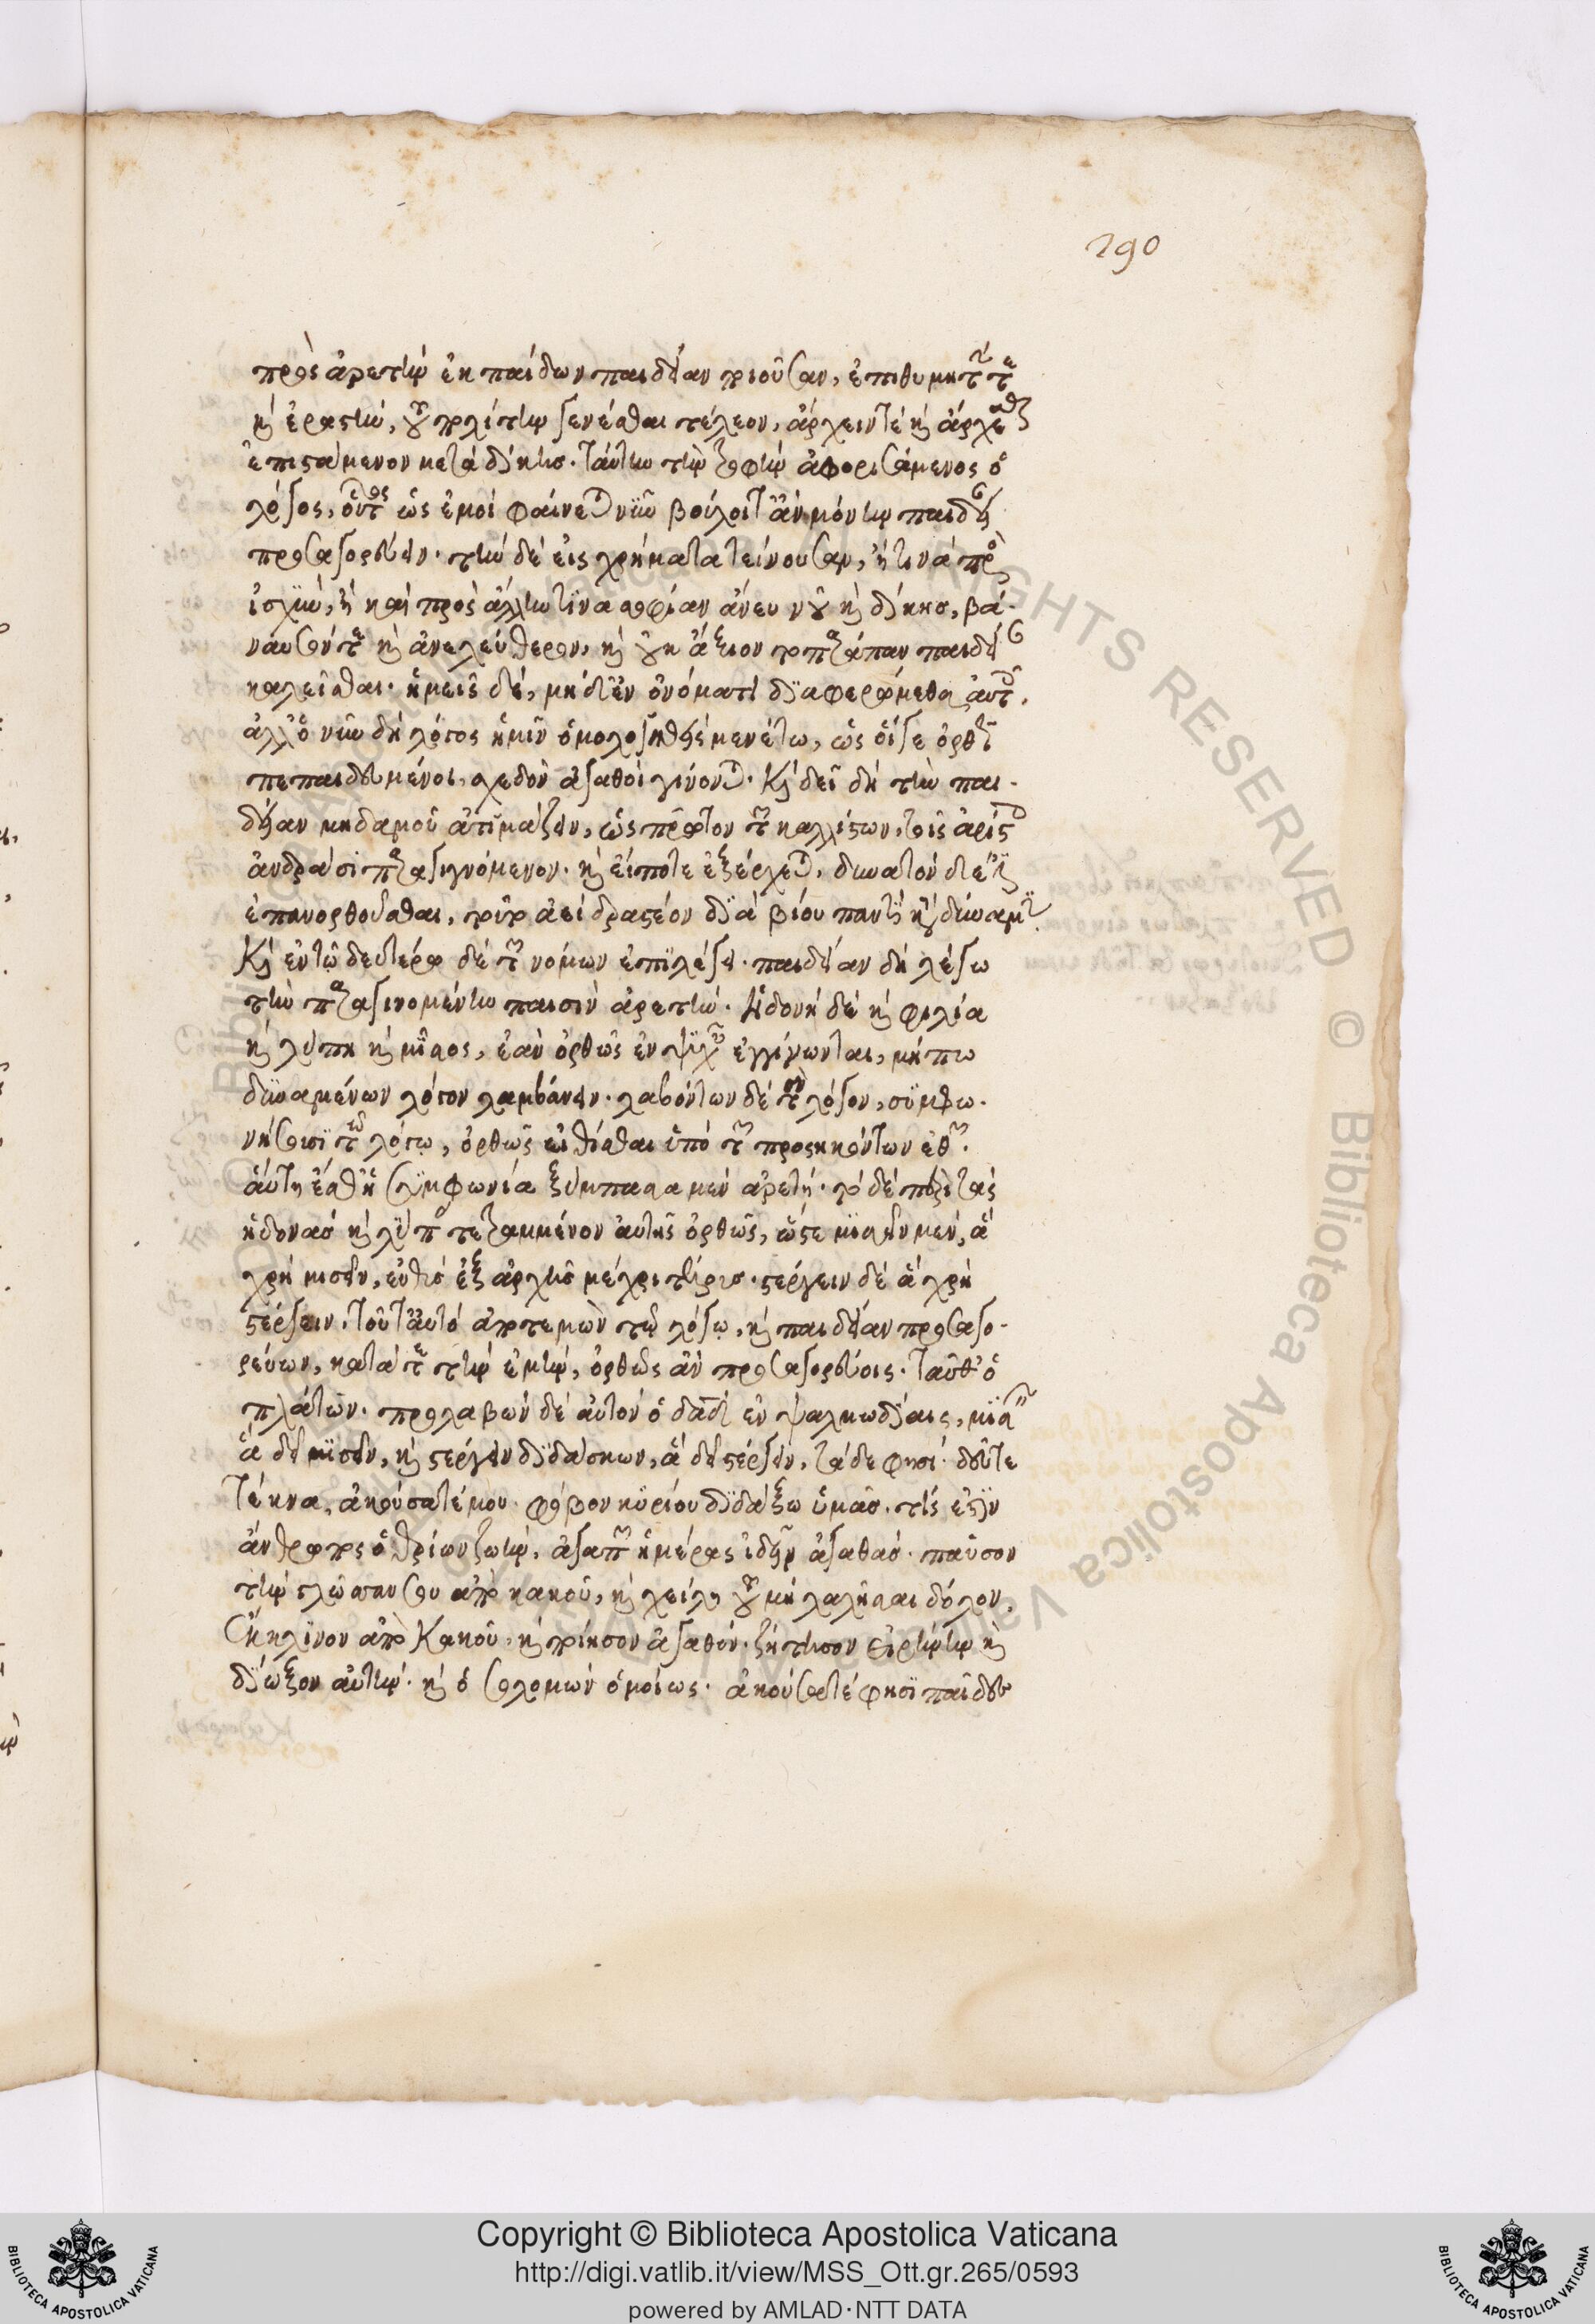 290
πρὸς ἀρετὴν ἐκ παίδων παιδείαν ποιοῦσαν, ἐπιθυμητήν τε
καὶ ἐραστὴν, τοῦ πολίτην γενέσθαι τέλεον, ἄρχειν τὲ καὶ ἄρχεσθαι
ἐπιστάμενον μετὰ δίκης. ταύτην τὴν τροφὴν ἀφορισάμενος ὁ
λόγος, οὗτος ὡς ἐμοὶ φαίνεται νῦν βούλοιτ ἂν μόνην παιδείαν
προσαγορεύειν. τὴν δὲ εἰς χρήματα τείνουσαν, ἤ τινα πρὸς
ἰσχὺν, ἢ καὶ πρὸς ἄλλην τινα σοφίαν ἄνευ νοῦ καὶ δίκης, βά-
ναυσόν τε καὶ ἀνελεύθερον, καὶ οὐκ ἄξιον τοπαράπαν παιδείαν
καλεῖσθαι. ἡμεῖς δὲ, μηδὲν ὀνόματι διαφερώμεθα αὐτοῖς.
ἀλλ ὁ νῦν δὴ λόγος ἡμῖν ὁμολογηθεὶς μενέτω, ὡς οἵ γε ὀρθῶς
πεπαιδευμένοι, σχεδὸν ἀγαθοὶ γίνονται. Καὶ δεῖ δὴ τὴν παι-
δείαν μηδαμοῦ ἀτιμάζειν, ὡς πρῶτον τῶν καλλίστων, τοῖς ἀρίστοις
ἀνδράσι παραγιγνόμενον. καὶ εἴποτε ἐξέρχεται, δυνατὸν δ ἐστὶν
ἐπανορθοῦσθαι, τοῦτ ἀεὶ δραστέον διὰ βίου παντὶ κατὰ δύναμιν.
Καὶ ἐν τῷ δευτέρῳ δὲ τῶν νόμων ἐπιλέγει. παιδείαν δὴ λέγω
τὴν παραγινομένην παισὶν ἀρετήν. ἡδονὴ δὲ καὶ φιλία
καὶ λύπη καὶ μῖσος, ἐὰν ὀρθῶς ἐν ψυχαῖς ἐγγίγνωνται, μήπω
δυναμένων λόγον λαμβάνειν. λαβόντων δὲ τὸν λόγον, συμφω-
νήσωσι τῷ λόγῳ, ὀρθῶς εἰθίσθαι ὑπὸ τῶν προσηκόντων ἐθῶν.
αὕτη ἐσθ ἡ συμφωνία ξύμπασα μὲν ἀρετή. τὸ δὲ περὶ τὰς
ἡδονὰς καὶ λύπας τεθραμμένον αὐτῆς ὀρθῶς, ὥστε μισεῖν μὲν, ἃ
χρὴ μισεῖν, εὐθὺς ἐξ ἀρχῆς μέχρι τέλους. στέργειν δὲ ἃ χρὴ
στέργειν. τοῦτ αὐτὸ ἀποτεμὼν τῷ λόγῳ, καὶ παιδείαν προσαγο-
ρεύων, κατά γε τὴν ἐμὴν, ὀρθῶς ἂν προσαγορεύοις. ταῦθ ὁ
πλάτων. προλαβὼν δὲ αὐτὸν ὁ δαδ ἐν ψαλμωδίαις, μισεῖν
ἃ δεῖ μισεῖν, καὶ στέργειν διδάσκων, ἃ δεῖ στέργειν, τάδε φησί. δεῦτε
τέκνα, ἀκούσατέ μου. φόβον κυρίου διδάξω ὑμᾶς. τίς ἐστιν
ἄνθρωπος ὁ θέλων ζωὴν, ἀγαπῶν ἡμέρας ἰδεῖν ἀγαθάς. παῦσον
τὴν γλῶσσαν σου ἀπὸ κακοῦ, καὶ χείλη τοῦ μὴ λαλῆσαι δόλον.
ἔκκλινον ἀπὸ κακοῦ, καὶ ποίησον ἀγαθόν. ζήτησον εἰρήνην καὶ
δίωξον αὐτήν. καὶ ὁ σολομὼν ὁμοίως. ἀκούσατέ φησι παῖδες
Copyright © Biblioteca Apostolica Vaticana
http://digi.vatlib.it/view/MSS_Ott.gr.265/0593
powered by AMLAD·NTT DATA